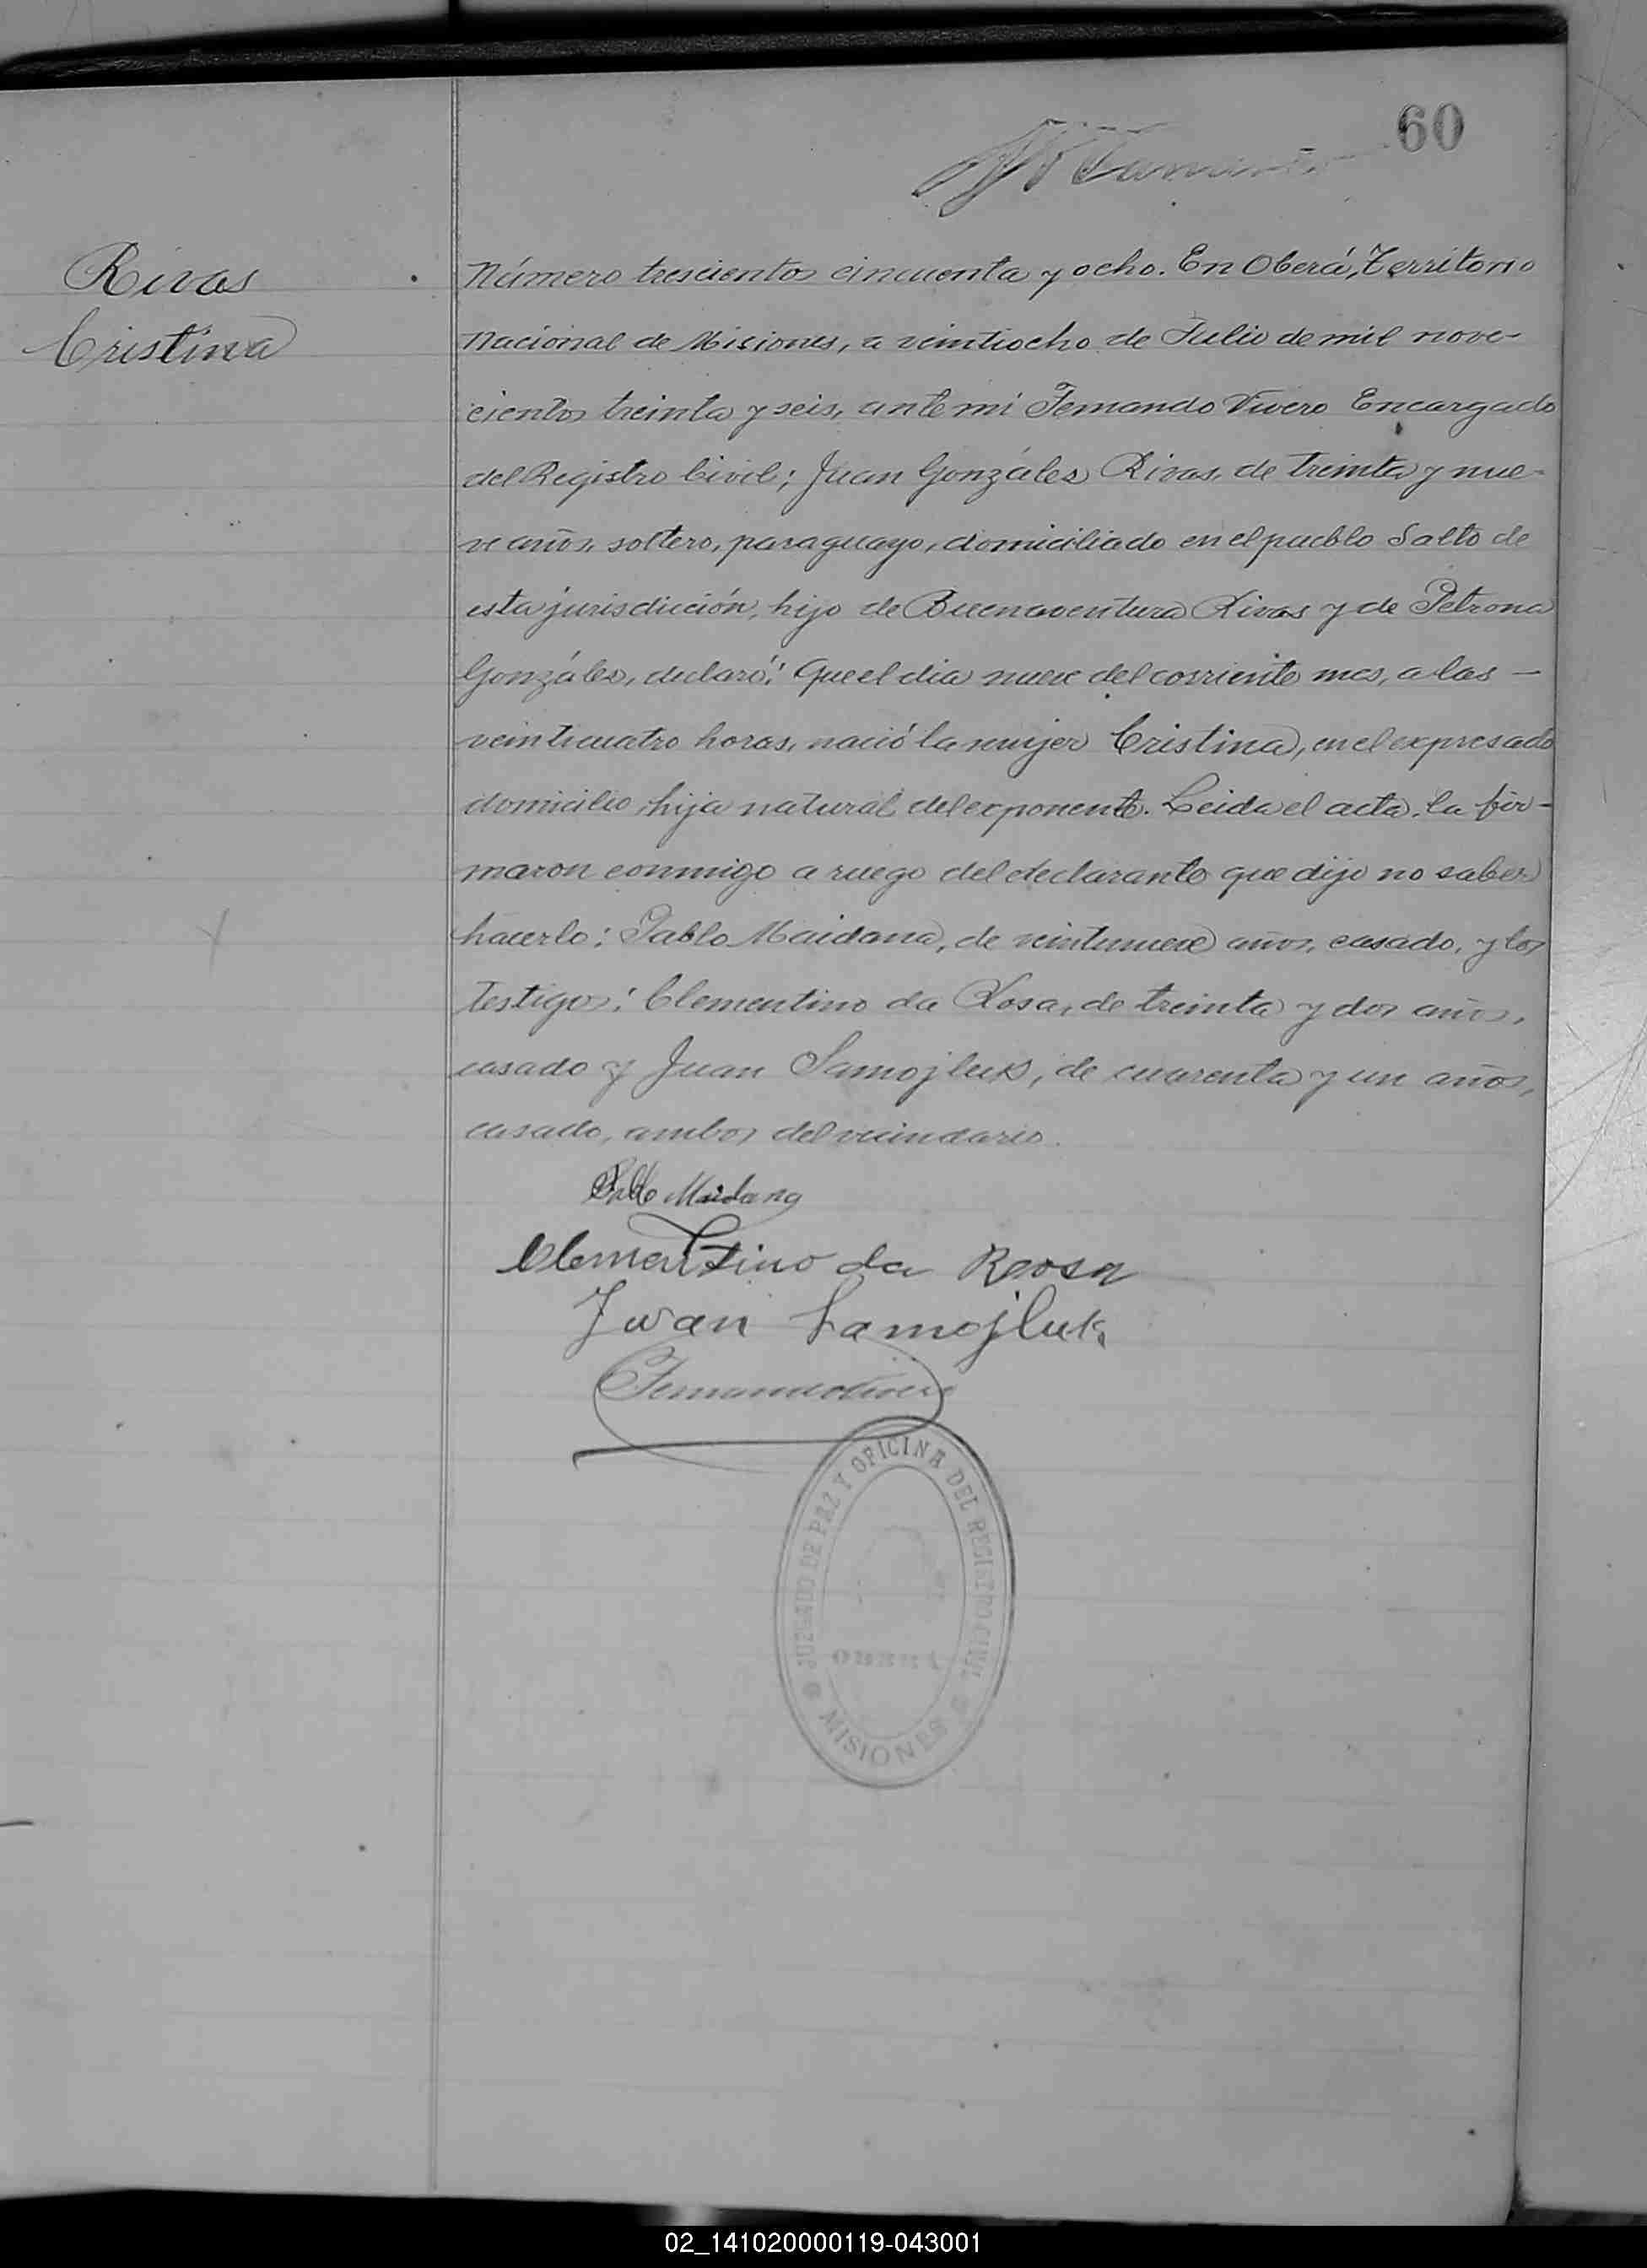 60
Rivas
Cristina
Número trescientos cincuenta y ocho. En Oberá, Territorio
Nacional de Misiones, a veintiocho de Julio de mil nove-
cientos treinta y seis, ante mi Fernando Vivero Encargado
del Registro Civil; Juan Gonzáles Rivas, de treinta y nue-
ve años, soltero, paraguayo, domiciliado en el pueblo Salto de
esta jurisdicción, hijo de Buenaventura Rivas y de Petrona
Gonzáles, declaró: Que el dia nueve del corriente mes, a las —
veinticuatro horas, nació la mujer Cristina, en el expresado
domicilio, hija natural del exponente. Leida el acta, la fir-
maron conmigo a ruego del declarante que dijo no saber
hacerlo: Pablo Maidana, de veintinueve años, casado, y los
testigos: Clementino da Rosa, de treinta y dos años,
casado y Juan Samojluk, de cuarenta y un años,
casado, ambos del vecindario.
Pablo Maidana
Clementino da Rosa
Jwan Samojluk
Fernando Vivero
JUZGADO DE PAZ Y OFICINA DEL REGISTRO CIVIL
OBERA
MISIONES
02_141020000119-043001